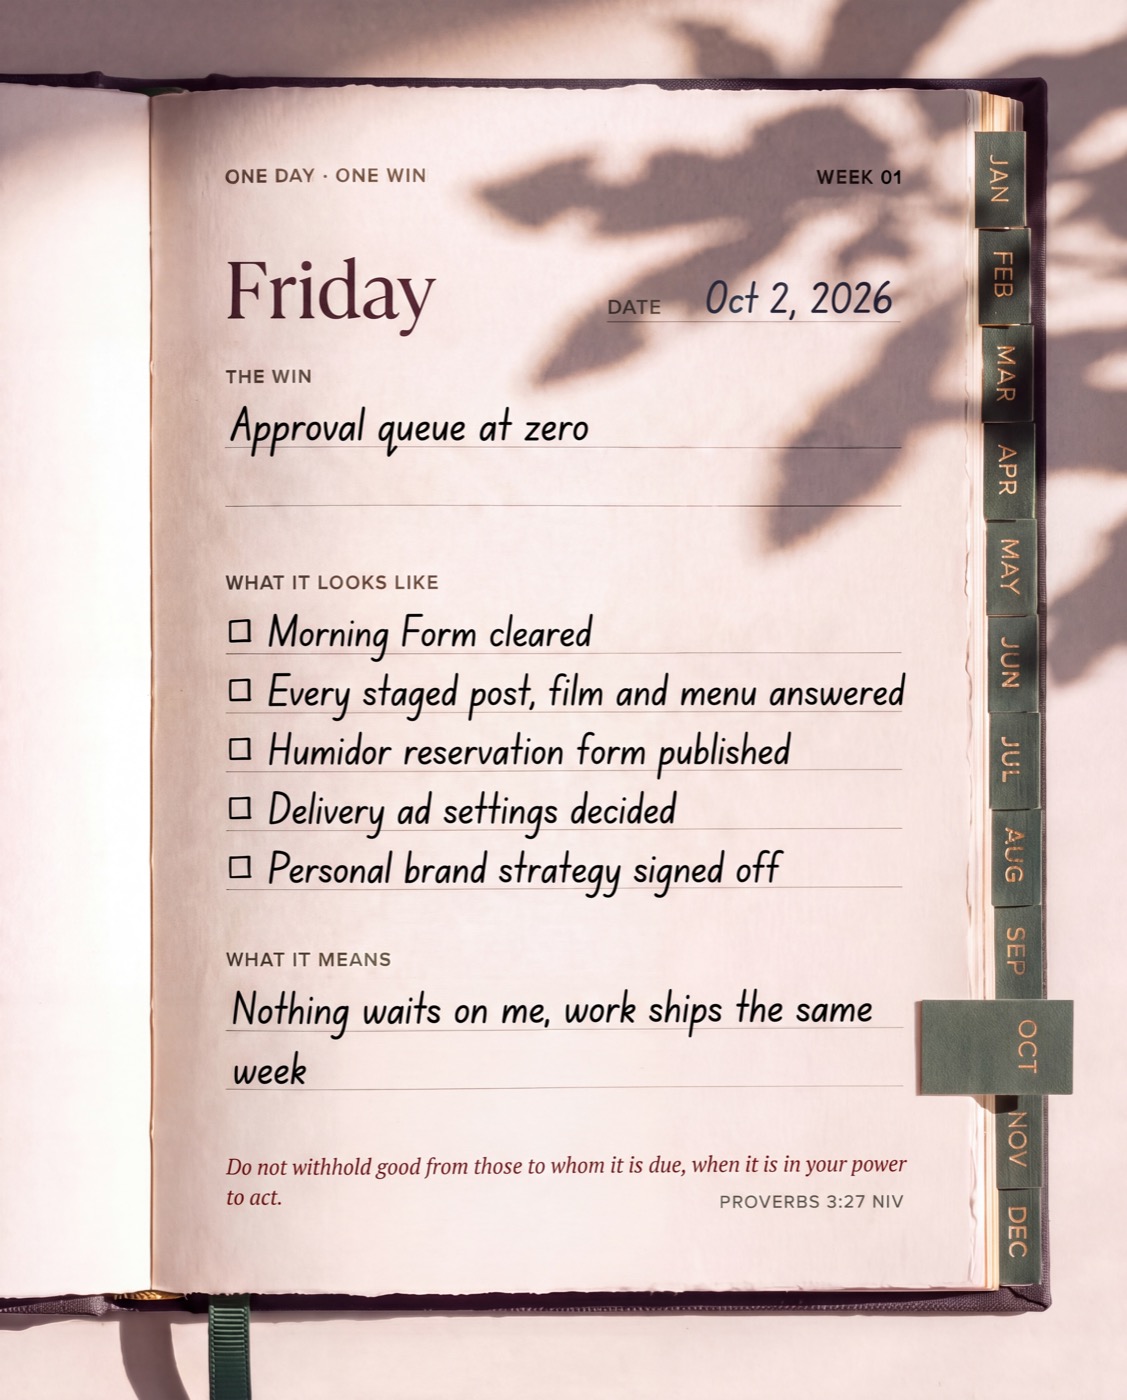 ONE DAY · ONE WIN
WEEK 01
Friday
DATE Oct 2, 2026
THE WIN
Approval queue at zero
WHAT IT LOOKS LIKE
☐ Morning Form cleared
☐ Every staged post, film and menu answered
☐ Humidor reservation form published
☐ Delivery ad settings decided
☐ Personal brand strategy signed off
WHAT IT MEANS
Nothing waits on me, work ships the same
week
Do not withhold good from those to whom it is due, when it is in your power
to act.
PROVERBS 3:27 NIV
JAN
FEB
MAR
APR
MAY
JUN
JUL
AUG
SEP
OCT
NOV
DEC